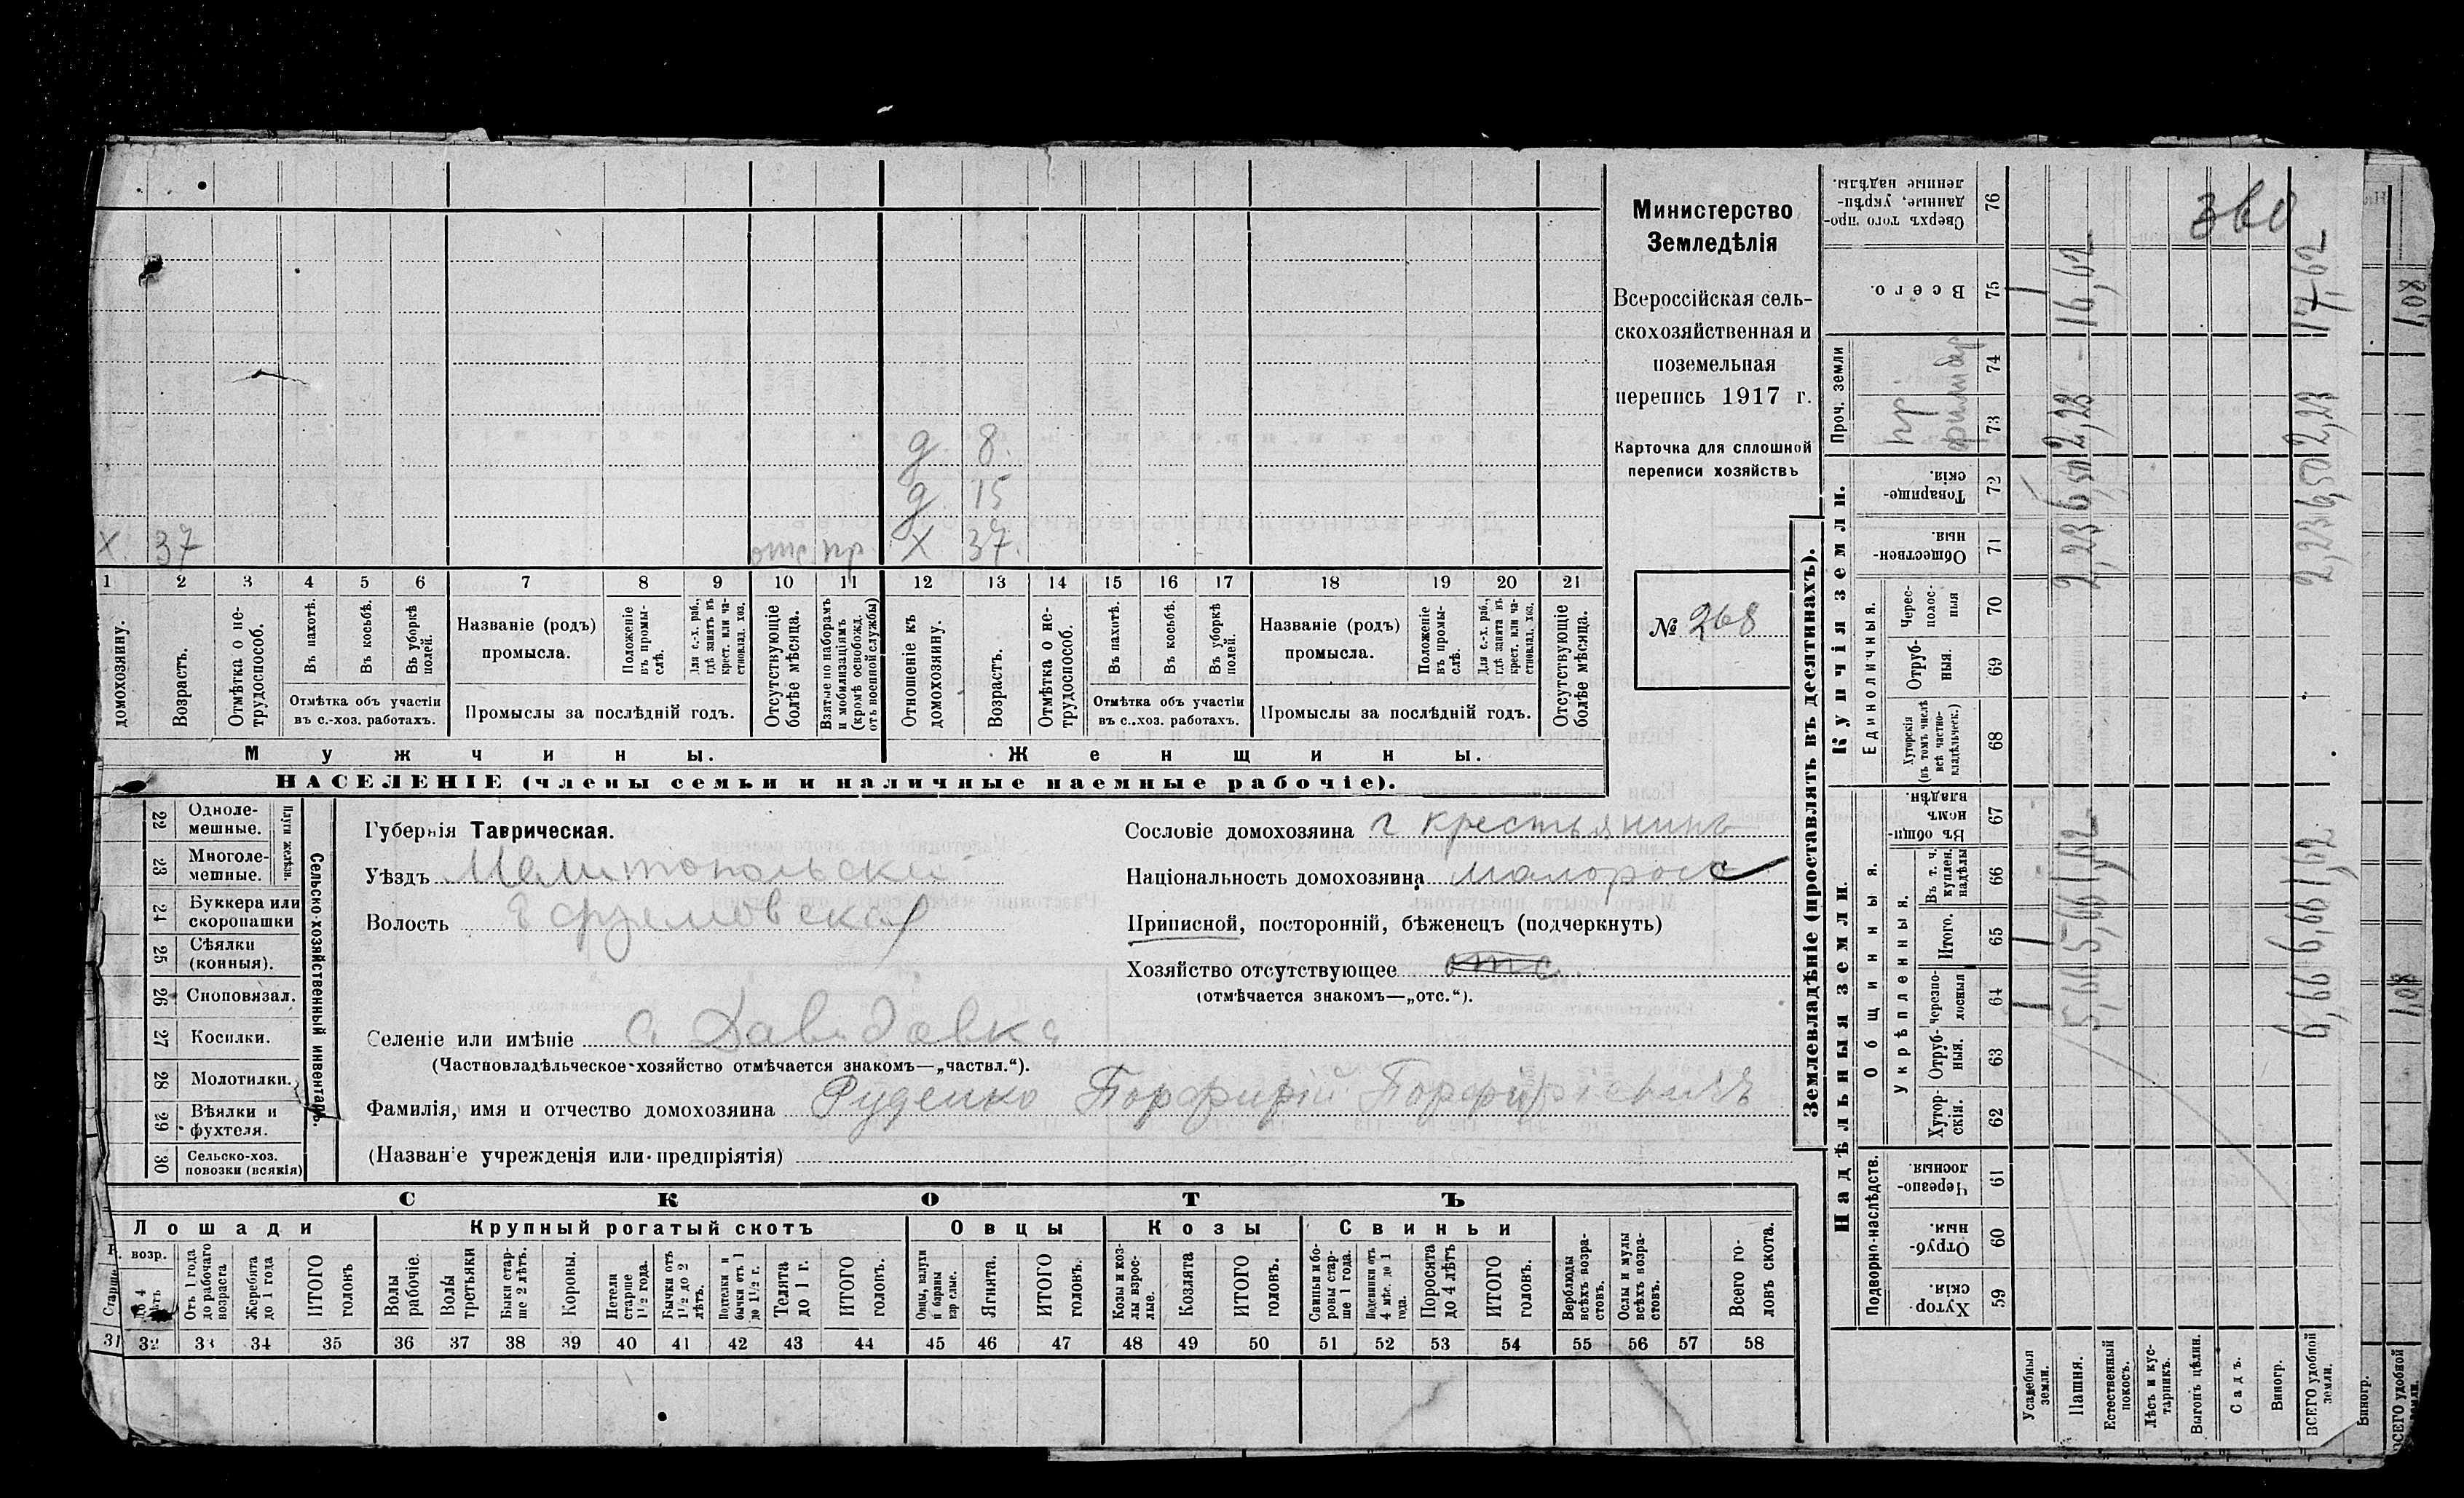 г. 8.
г. 15
х. 37 отс пр. х 37.
1 2 3 4 5 6 7 8 9 10 11 12 13 14 15 16 17 18 19 20 21
домохозяину.
Возрастъ.
Отмѣтка о не-
трудоспособ.
Въ пахотѣ.
Въ косьбѣ.
Въ уборкѣ
полей.
Отмѣтка объ участіи
въ с.-хоз. работахъ.
Названіе (родъ)
промысла.
Положеніе
въ промы-
слѣ.
Для с.-х. раб.,
гдѣ занятъ въ
крест. или ча-
стновлад. хоз.
Промыслы за послѣдній годъ.
Отсутствующіе
болѣе мѣсяца.
Взятые по наборамъ
и мобилизаціямъ
(кромѣ освобожд.
отъ военной службы)
Отношеніе къ
домохозяину.
Возрастъ.
Отмѣтка о не-
трудоспособ.
Въ пахотѣ.
Въ косьбѣ.
Въ уборкѣ
полей.
Отмѣтка объ участіи
въ с.-хоз. работахъ.
Названіе (родъ)
промысла.
Положеніе
въ промы-
слѣ.
Для с.-х. раб.,
гдѣ занята въ
крест. или ча-
стновлад. хоз.
Промыслы за послѣдній годъ.
Отсутствующіе
болѣе мѣсяца.
Мужчины. Женщины.
НАСЕЛЕНІЕ (члены семьи и наличные наемные рабочіе).
Министерство
Земледѣлія
Всероссійская сель-
скохозяйственная и
поземельная
перепись 1917 г.
Карточка для сплошной
переписи хозяйствъ
№ 268
22 Одноле-
мешные.
23 Многоле-
мешные.
Плуги желѣзн.
24 Буккера или
скоропашки
25 Сѣялки
(конныя).
26 Сноповязал.
27 Косилки.
28 Молотилки.
29 Вѣялки и
фухтеля.
30 Сельско-хоз.
повозки (всякія)
Сельско-хозяйственный инвентарь.
Губернія Таврическая.
Уѣздъ Мелитопольскій
Волость Ефремовская
Селеніе или имѣніе с Давидовка
(Частновладѣльческое хозяйство отмѣчается знакомъ—„частвл.“).
Фамилія, имя и отчество домохозяина Руденко Порфирій Порфиріевичъ
(Названіе учрежденія или предпріятія)
Сословіе домохозяина крестьянинъ
Національность домохозяина малоросс
Приписной, посторонній, бѣженецъ (подчеркнуть)
Хозяйство отсутствующее отс.
(отмѣчается знакомъ—„отс.“).
СКОТЪ
Лошади Крупный рогатый скотъ Овцы Козы Свиньи
возр.
Старше
до 4
лѣтъ
Отъ 1 года
до рабочаго
возраста
Жеребята
до 1 года
ИТОГО
головъ
Волы
рабочіе.
Волы
третьяки
Быки стар-
ше 2 лѣтъ.
Коровы.
Нетели
старше
1½ года.
Бычки отъ
1½ до 2
лѣтъ.
Подтелки и
бычки отъ 1
до 1½ г.
Телята
до 1 г.
ИТОГО
головъ.
Овцы, валухи
и бараны
взрослые.
Ягнята.
ИТОГО
головъ.
Козы и коз-
лы взрос-
лые.
Козлята
ИТОГО
головъ.
Свиньи и бо-
ровы стар-
ше 1 года.
Подсвинки отъ
4 мѣс. до 1
года.
Поросята
до 4 лѣтъ
ИТОГО
головъ.
Верблюды
всѣхъ возра-
стовъ.
Ослы и мулы
всѣхъ возра-
стовъ.
Всего го-
ловъ скота.
31 32 33 34 35 36 37 38 39 40 41 42 43 44 45 46 47 48 49 50 51 52 53 54 55 56 57 58
Землевладѣніе (проставлять въ десятинахъ).
Надѣльныя земли. Купчія земли. Проч. земли
Подворно-наслѣдств.
Общинныя.
Укрѣпленныя.
Единоличныя.
Хутор-
скія. 59
Отруб-
ныя. 60
Черезпо-
лосныя. 61
Хутор-
скія. 62
Отруб-
ныя. 63
Черезпо-
лосныя 64
Итого. 65
Въ т. ч.
куплен.
надѣлы 66
Въ общин-
номъ
владѣн. 67
Хуторскія
(въ томъ числѣ
всѣ частно-
владѣльческ.) 68
Отруб-
ныя. 69
Черес-
полос-
ныя 70
Обществен-
ныя. 71
Товарище-
скія. 72
73 74
Всего. 75
Сверхъ того про-
данные, укрѣп-
ленные надѣлы. 76
Усадебныя
земли.
Пашня.
Естественный
покосъ.
Лѣсъ и кус-
тарникъ.
Выгонъ цѣлин.
Садъ.
Виногр.
ВСЕГО удобной
земли.
5,66 5,66 1,62 2,23 6,50 2,23 - 16,62
6,66 6,66 1,62 2,23 6,50 2,23 17,62
360
Виногр.
ВСЕГО удобной
земли.
1,08
1,08